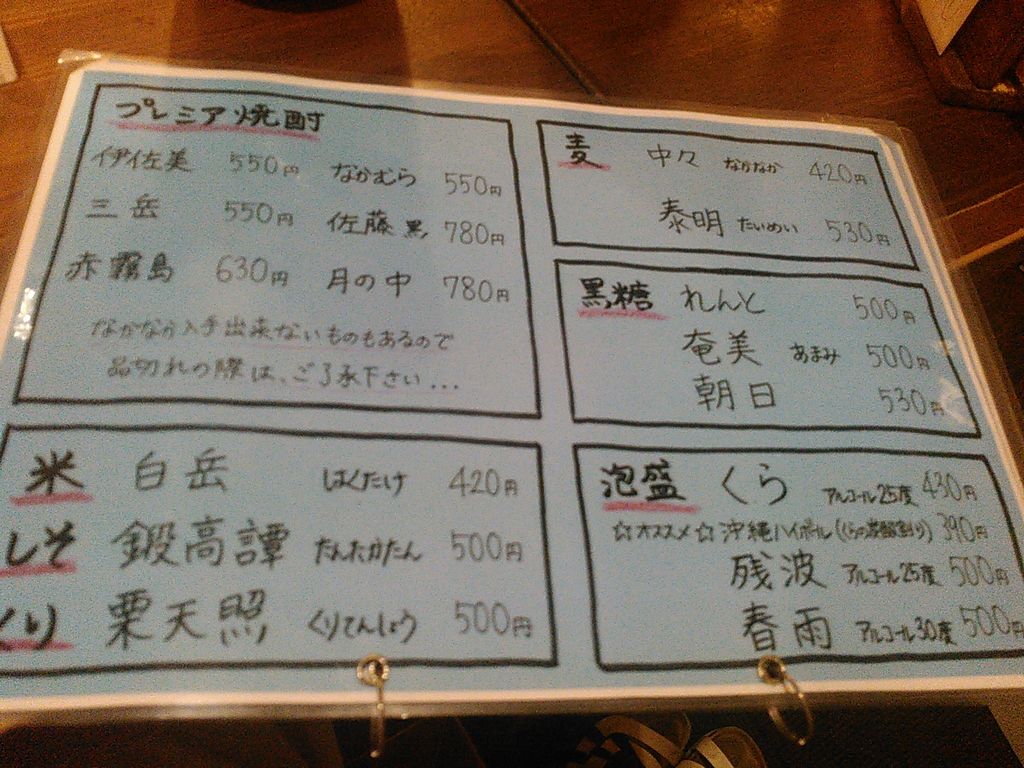 プレミア焼酎
伊佐美 550円 なかむら 550円
三岳 550円 佐藤 黒 780円
赤霧島 630円 月の中 780円
なかなか入手出来ないものもあるので
品切れの際は、ご了承下さい...
麦 中々 なかなか 420円
泰明 たいめい 530円
黒糖 れんと 500円
奄美 あまみ 500円
朝日 530円
米 白岳 はくたけ 420円
しそ 鍛高譚 たんたかたん 500円
くり 栗天照 くりてんしょう 500円
泡盛 くら アルコール25度 430円
☆オススメ☆ 沖縄ハイボール(くらの炭酸割り) 390円
残波 アルコール25度 500円
春雨 アルコール30度 500円